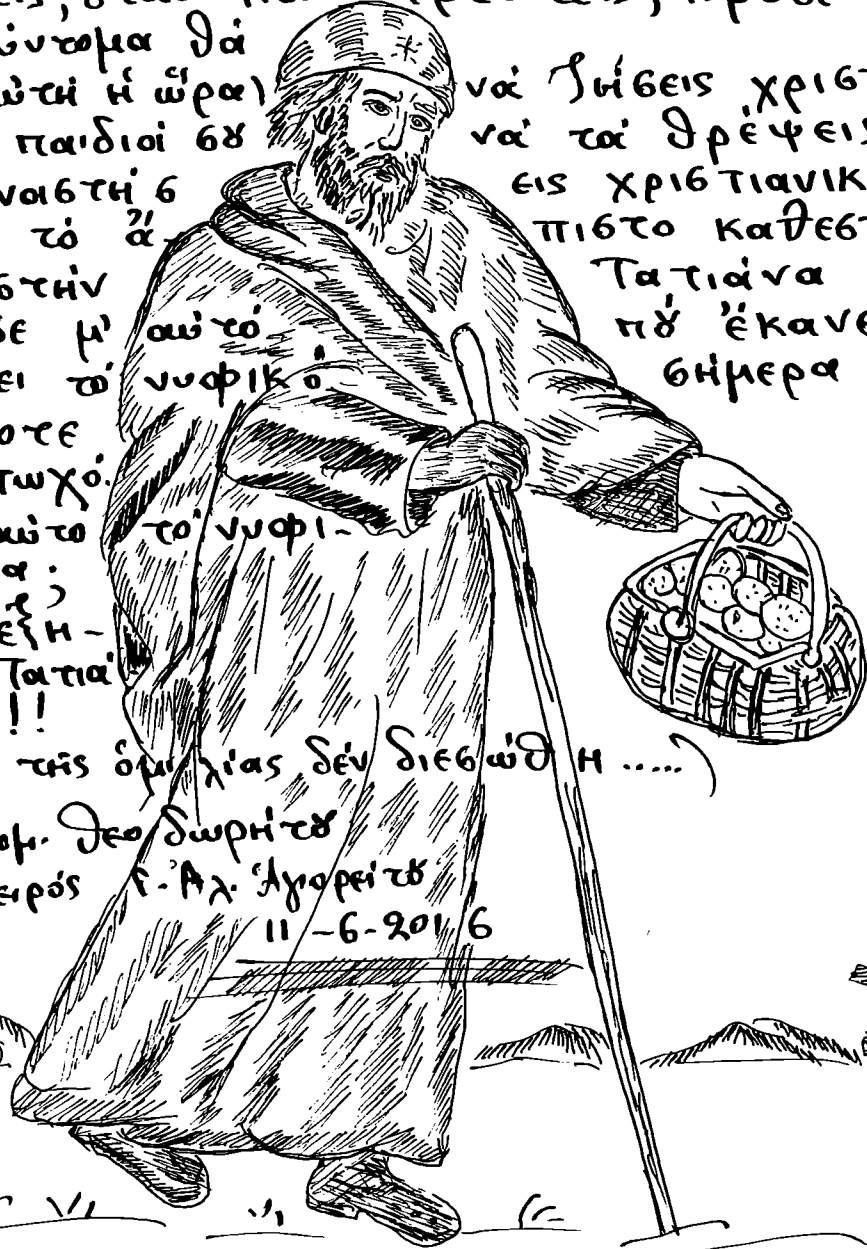 ύντομα θά
αὐτή ἡ ὥρα) νά ζήσεις χριστ
παιδιά σȣ νά τά θρέψεις
ναστή σ εις χριστιανικ
τό ἄ- πιστο καθεστ
στήν Τατιάνα
δε μ' αὐτό πȣ́ ἔκανε
ει τό νυφικό σήμερα
οτε
τωχό.
αὐτο το νυφι-
α.
εξη-
Τατιά
!!
τῆς ὁμιλίας δέν διεσώθη .....)
ομ. Θεοδωρήτȣ
ειρός Γ. Ἀλ. Ἁγιορείτȣ
11-6-2016